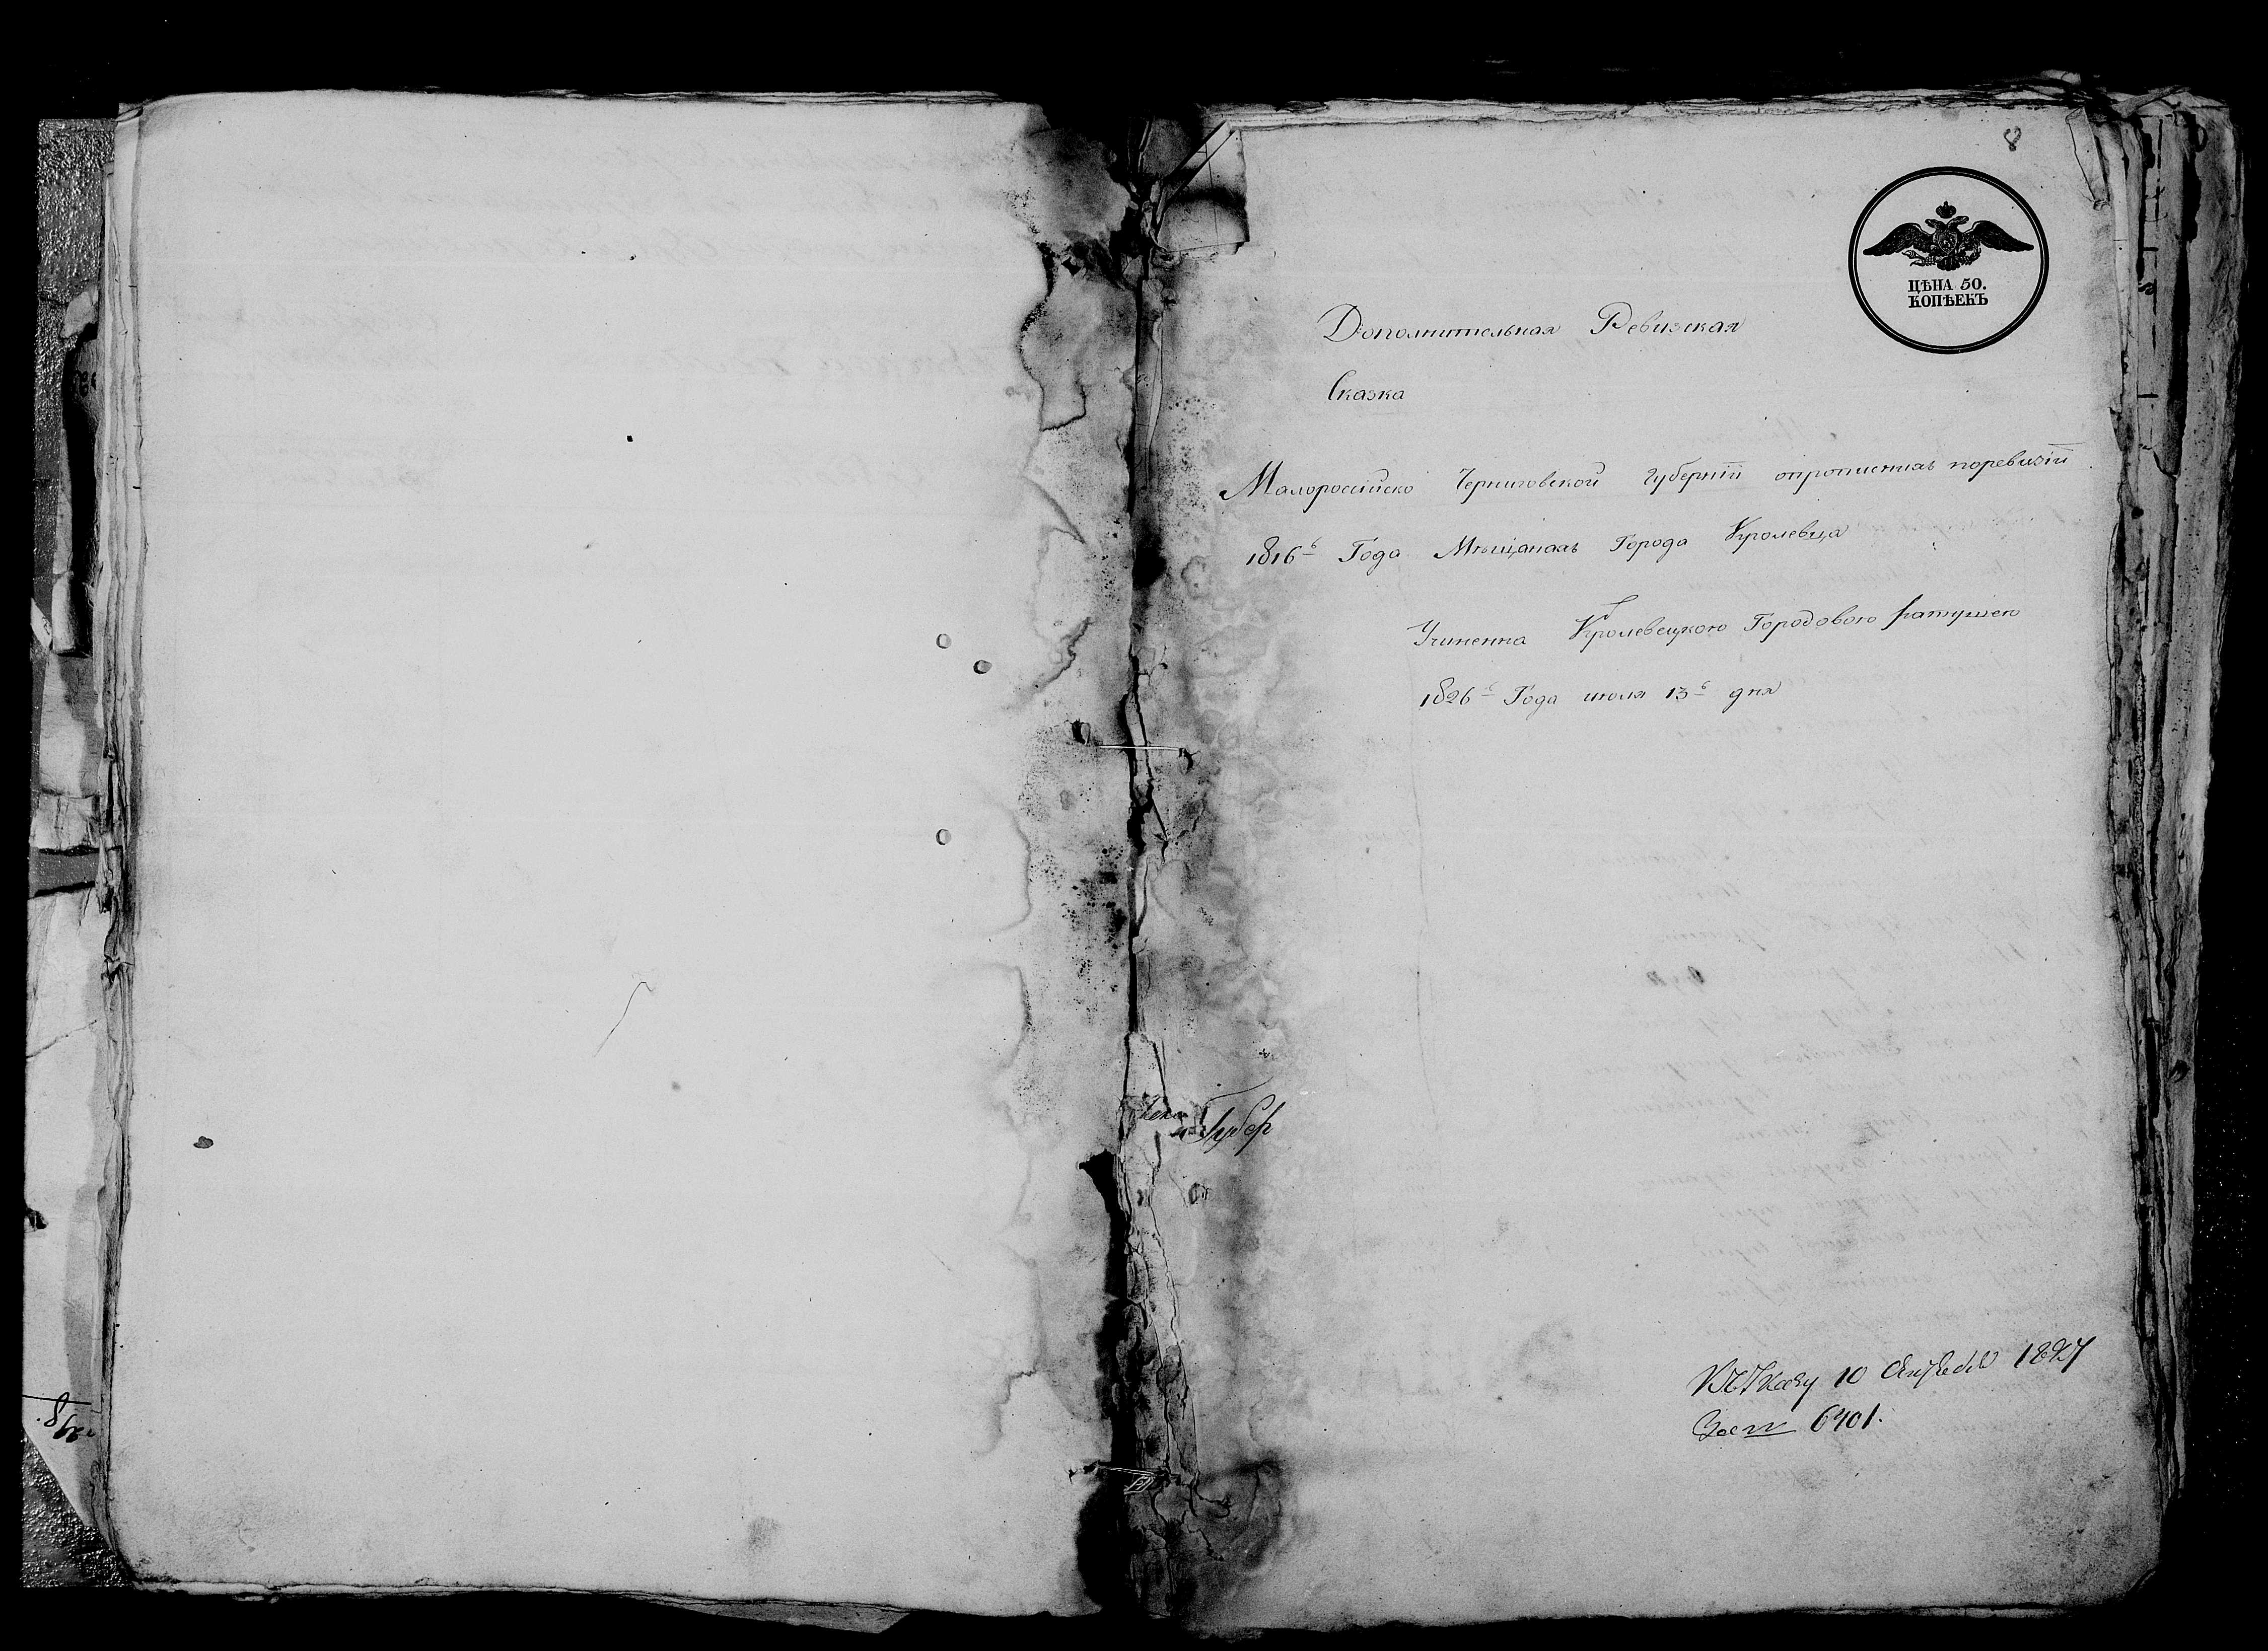 8
ЦѢНА 50.
КОПѢЕКЪ
Дополнительная Ревизская
Сказка
Малороссійско Черниговской губерніи опрописнихъ поревизіи
1816го Года Мѣщанахъ Города Кролевца
Учиненна Кролевецкою Городовою ратушею
1826го Года июля 13го дня
Губер
10 1827
6401.